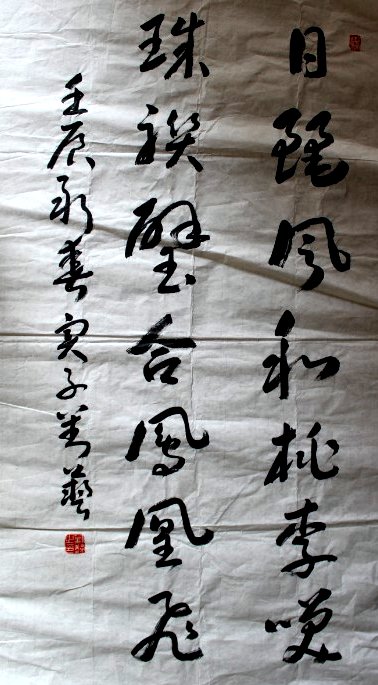 日麗風和桃李咲
珠聯璧合鳳凰飛
壬辰新春